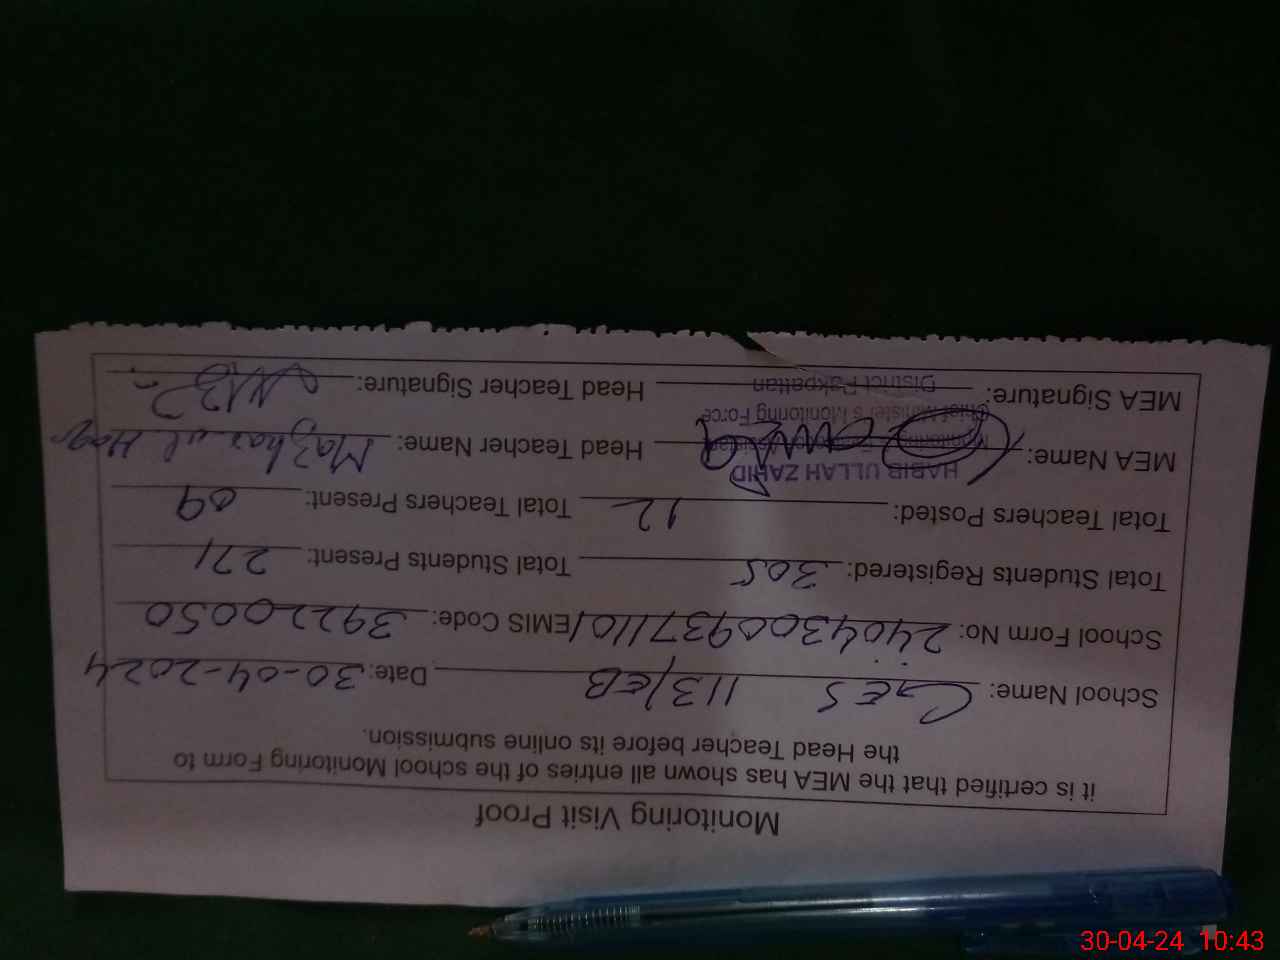 Monitoring Visit Proof
it is certified that the MEA has shown all entries of the school Monitoring Form to
the Head Teacher before its online submission.
School Name: GES 113/EB Date: 30-04-2024
School Form No: 2404300937110/EMIS Code: 39220050
Total Students Registered: 305 Total Students Present: 271
Total Teachers Posted: 12 Total Teachers Present: 09
MEA Name: HABIB ULLAH ZAHID Head Teacher Name: Mazhar ul Haq
Chief Minister's Monitoring Force
MEA Signature: District Pakpattan Head Teacher Signature:
30-04-24 10:43